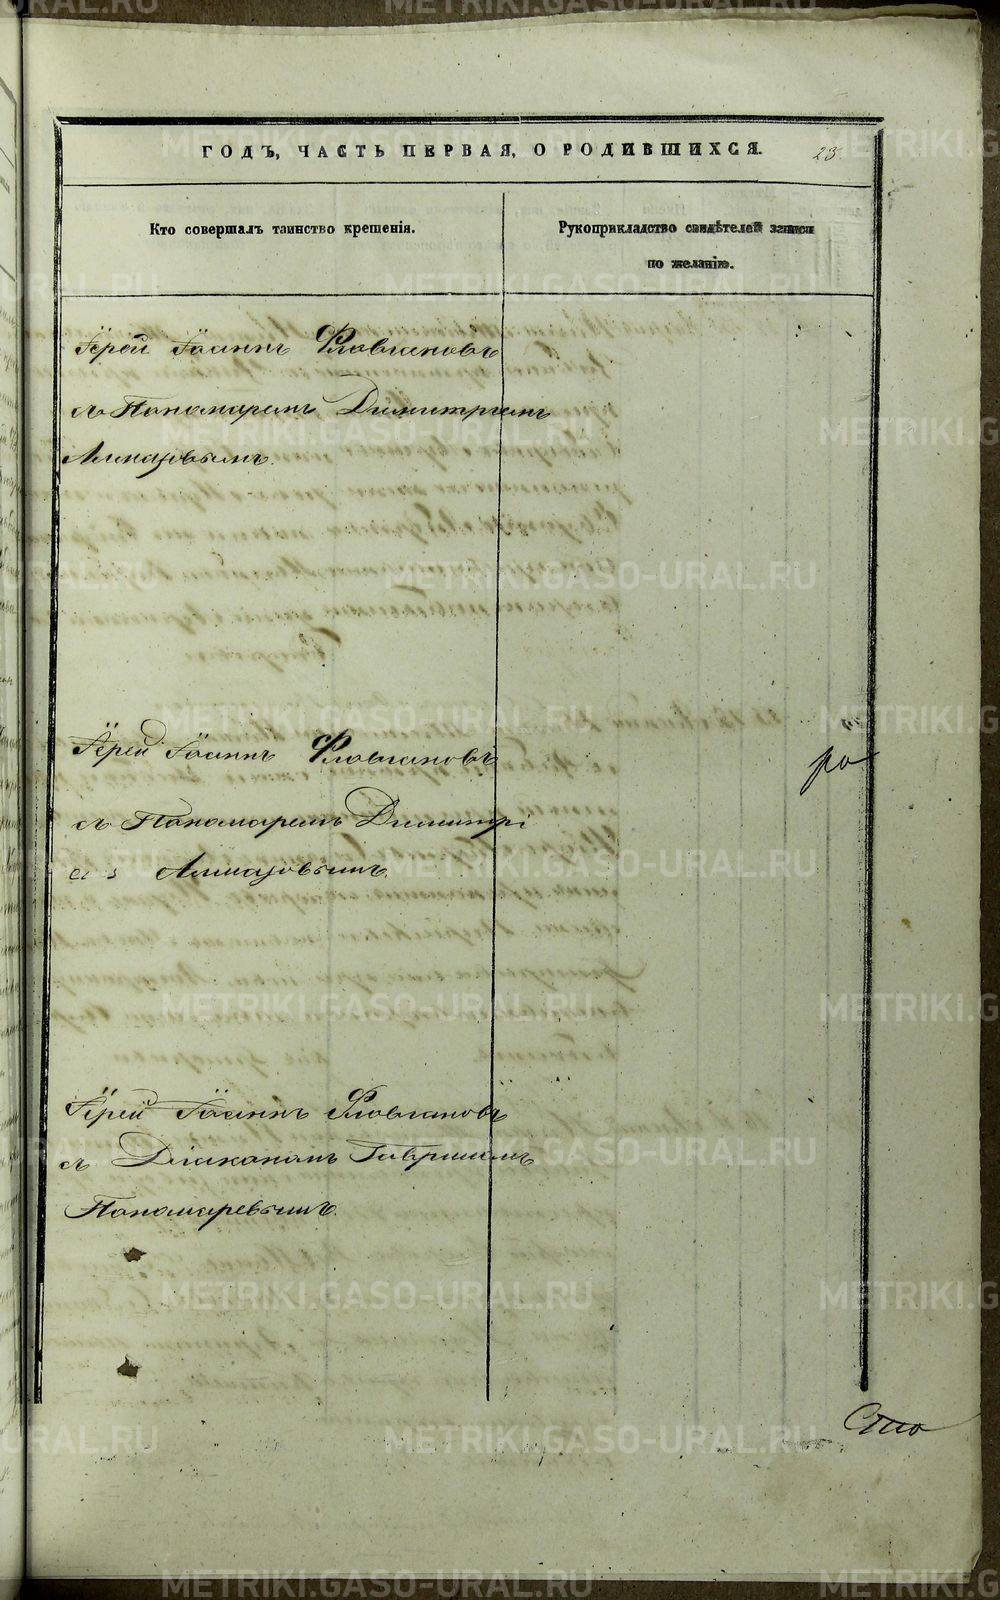 ГОДЪ, ЧАСТЬ ПЕРВАЯ, О РОДИВШИХСЯ. 23
Кто совершалъ таинство крещенія.
Рукоприкладство свидѣтелей записи
по желанію.
Іерей Іоаннъ Флавіановъ
съ Пономаремъ Димитріемъ
Алмазовымъ.
Іерей Іоаннъ Флавіановъ
съ Пономаремъ Димитрі
емъ Алмазовымъ.
Іерей Іоаннъ Флавіановъ
съ Діакономъ Гавриломъ
Пономаревымъ.
ро
METRIKI.GASO-URAL.RU